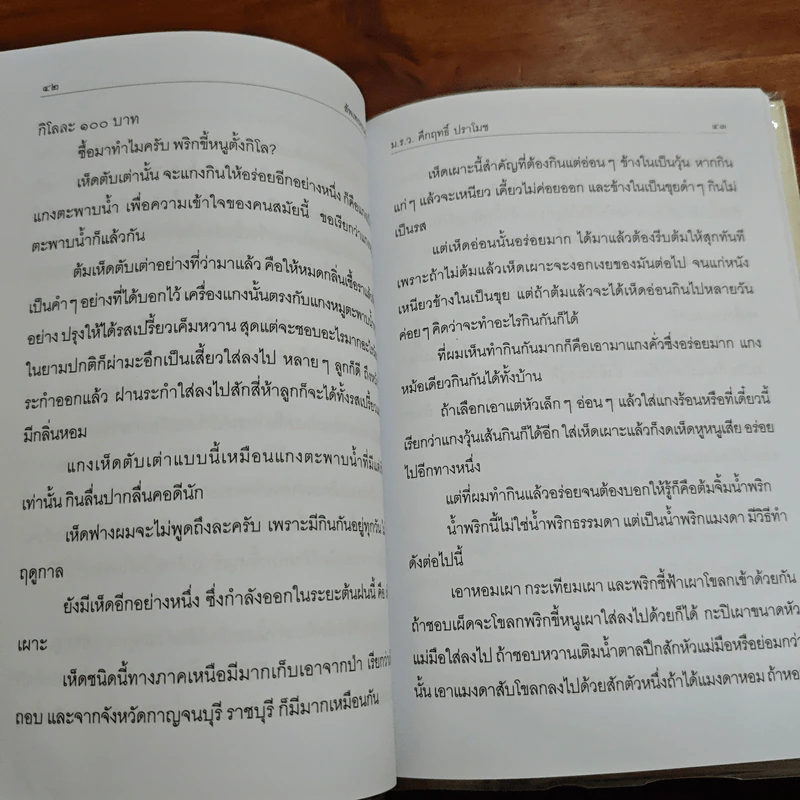 ๔๒
กิโลละ ๑๐๐ บาท
ซื้อมาทำไมครับ พริกขี้หนูตั้งกิโล?
เห็ดตับเต่านั้น จะแกงกินให้อร่อยอีกอย่างหนึ่ง ก็คือ
แกงตะพาบน้ำ เพื่อความเข้าใจของคนสมัยนี้ ขอเรียกว่า
ตะพาบน้ำก็แล้วกัน
ต้มเห็ดตับเต่าอย่างที่ว่ามาแล้ว คือให้หมดกลิ่นเชื้อรา
เป็นคำๆ อย่างที่ได้บอกไว้ เครื่องแกงนั้นตรงกับแกงหมูตะพาบน้ำ
อย่าง ปรุงให้ได้รสเปรี้ยวเค็มหวาน สุดแต่จะชอบอะไรมาก
ในยามปกติก็ผ่ามะอึกเป็นเสี้ยวใส่ลงไป หลายๆ ลูกก็ดี
ระกำออกแล้ว ฝานระกำใส่ลงไปสักสี่ห้าลูกก็จะได้ทั้งรสเปรี้ยว
มีกลิ่นหอม
แกงเห็ดตับเต่าแบบนี้เหมือนแกงตะพาบน้ำที่มี
เท่านั้น กินลื่นปากลื่นคอดีนัก
เห็ดฟางผมจะไม่พูดถึงละครับ เพราะมีกินกันอยู่ทุกวัน
ฤดูกาล
ยังมีเห็ดอีกอย่างหนึ่ง ซึ่งกำลังออกในระยะต้นฝนนี้ คือ
เผาะ
เห็ดชนิดนี้ทางภาคเหนือมีมากเก็บเอาจากป่า
ถอบ และจากจังหวัดกาญจนบุรี ราชบุรี ก็มีมากเหมือนกัน
ม.ร.ว. คึกฤทธิ์ ปราโมช ๔๓
เห็ดเผาะนี้สำคัญที่ต้องกินแต่อ่อนๆ ข้างในเป็นวุ้น หากกิน
แก่ๆ แล้วจะเหนียว เคี้ยวไม่ค่อยออก และข้างในเป็นขุยดำๆ กินไม่
เป็นรส
แต่เห็ดอ่อนนั้นอร่อยมาก ได้มาแล้วต้องรีบต้มให้สุกทันที
เพราะถ้าไม่ต้มแล้วเห็ดเผาะจะงอกเงยของมันต่อไป จนแก่หนัง
เหนียวข้างในเป็นขุย แต่ถ้าต้มแล้วจะได้เห็ดอ่อนกินไปหลายวัน
ค่อยๆ คิดว่าจะทำอะไรกินกันก็ได้
ที่ผมเห็นทำกินกันมากก็คือเอามาแกงคั่วซึ่งอร่อยมาก แกง
หม้อเดียวกินกันได้ทั้งบ้าน
ถ้าเลือกเอาแต่หัวเล็กๆ อ่อนๆ แล้วใส่แกงร้อนหรือที่เดี๋ยวนี้
เรียกว่าแกงวุ้นเส้นกินก็ได้อีก ใส่เห็ดเผาะแล้วก็งดเห็ดหูหนูเสีย อร่อย
ไปอีกทางหนึ่ง
แต่ที่ผมทำกินแล้วอร่อยจนต้องบอกให้รู้ก็คือต้มจิ้มน้ำพริก
น้ำพริกนี้ไม่ใช่น้ำพริกธรรมดา แต่เป็นน้ำพริกแมงดา มีวิธีทำ
ดังต่อไปนี้
เอาหอมเผา กระเทียมเผา และพริกชี้ฟ้าเผาโขลกเข้าด้วยกัน
ถ้าชอบเผ็ดจะโขลกพริกขี้หนูเผาใส่ลงไปด้วยก็ได้ กะปิเผาขนาดหัว
แม่มือใส่ลงไป ถ้าชอบหวานเติมน้ำตาลปึกสักหัวแม่มือหรือย่อมกว่า
นั้น เอาแมงดาสับโขลกลงไปด้วยสักตัวหนึ่งถ้าได้แมงดาหอม